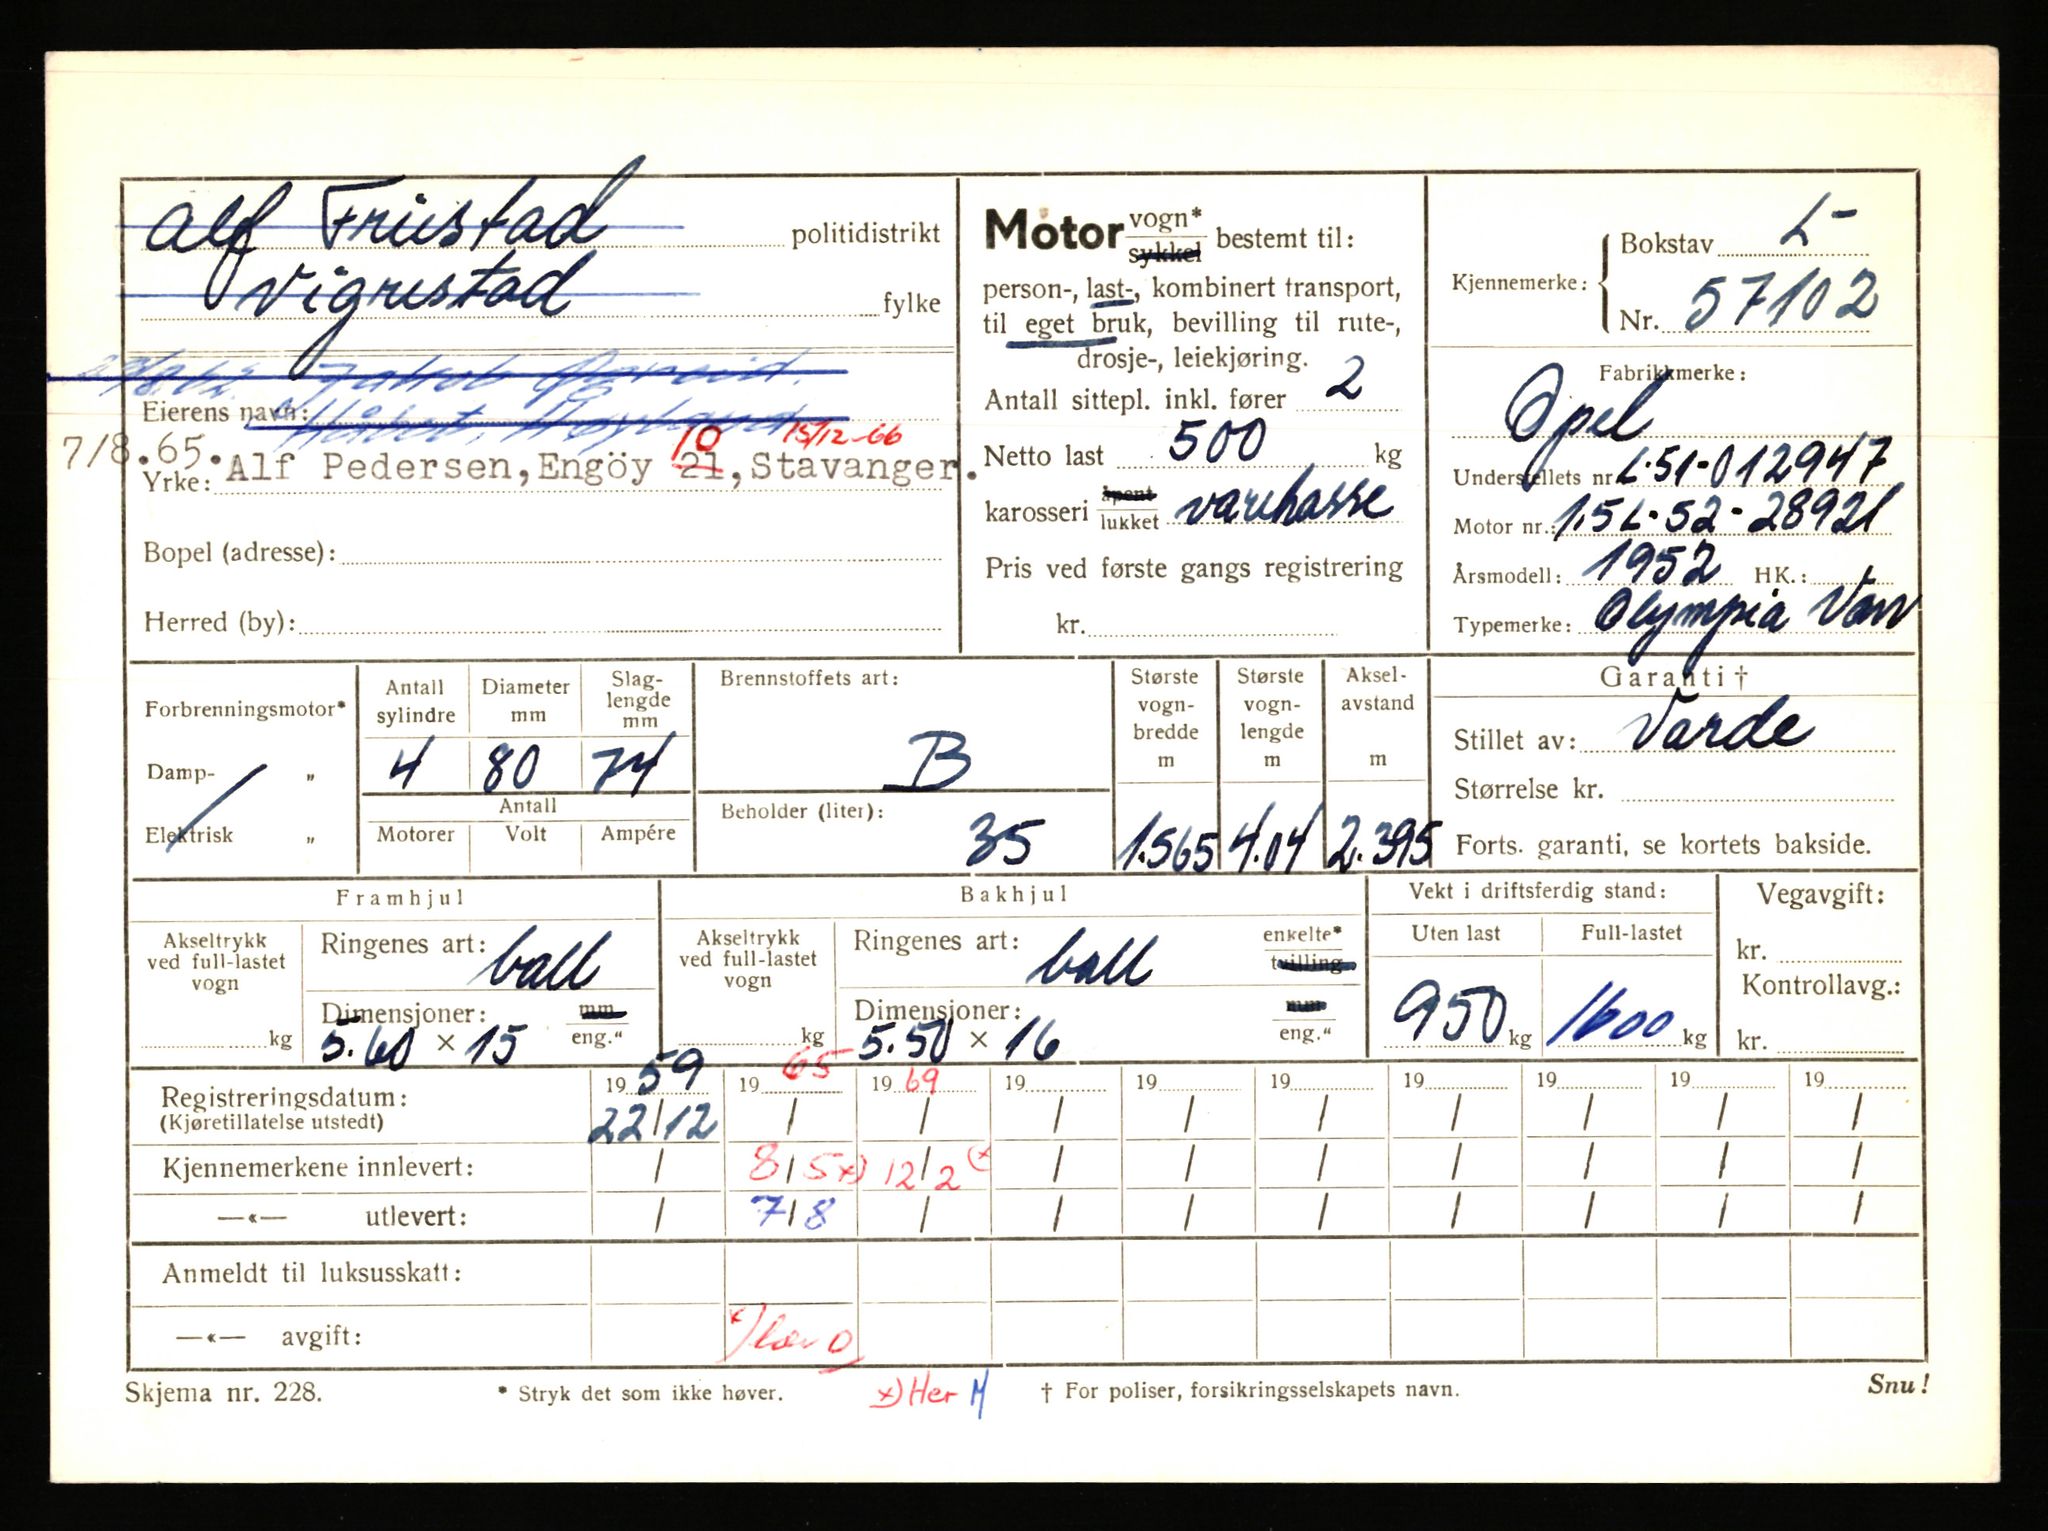 Alf Friestad politidistrikt
Vigrestad fylke
Eierens navn:
7/8.65. Alf Pedersen, Engöy 21, Stavanger.
10 15/12-66
Yrke:
Bopel (adresse):
Herred (by):
Motor vogn* sykkel bestemt til:
person-, last-, kombinert transport,
til eget bruk, bevilling til rute-,
drosje-, leiekjøring.
Antall sittepl. inkl. fører 2
Netto last 500 kg
karosseri åpent lukket varekasse
Pris ved første gangs registrering
kr.
Kjennemerke: Bokstav L-
Nr. 57102
Fabrikkmerke:
Opel
Understellets nr. L-51-012947
Motor nr.: 1.5L-52-28921
Årsmodell: 1952 HK.:
Typemerke: Olympia Varv
Forbrenningsmotor*
Damp- „
Elektrisk „
Antall sylindre 4
Diameter mm 80
Slaglengde mm 74
Antall
Motorer Volt Ampére
Brennstoffets art:
B
Beholder (liter):
35
Største vognbredde m 1.565
Største vognlengde m 4.04
Akselavstand m 2.395
Garanti †
Stillet av: Varde
Størrelse kr.
Forts. garanti, se kortets bakside.
Framhjul
Akseltrykk ved full-lastet vogn
kg
Ringenes art: ball
Dimensjoner: mm
5.60 × 15 eng.“
Bakhjul
Akseltrykk ved full-lastet vogn
kg
Ringenes art: ball enkelte* tvilling
Dimensjoner: mm
5.50 × 16 eng.“
Vekt i driftsferdig stand:
Uten last Full-lastet
950 kg 1600 kg
Vegavgift:
kr.
Kontrollavg.:
kr.
Registreringsdatum: 19 59 19 65 19 69 19 19 19 19 19 19 19
(Kjøretillatelse utstedt) 22/12 / / / / / / / / /
Kjennemerkene innlevert: / 8/5 x) 12/2 (x / / / / / / /
—«— utlevert: / 7/8 / / / / / / / /
Anmeldt til luksusskatt:
—«— avgift:
Skjema nr. 228.
* Stryk det som ikke høver.
x) Her M
† For poliser, forsikringsselskapets navn.
Snu!